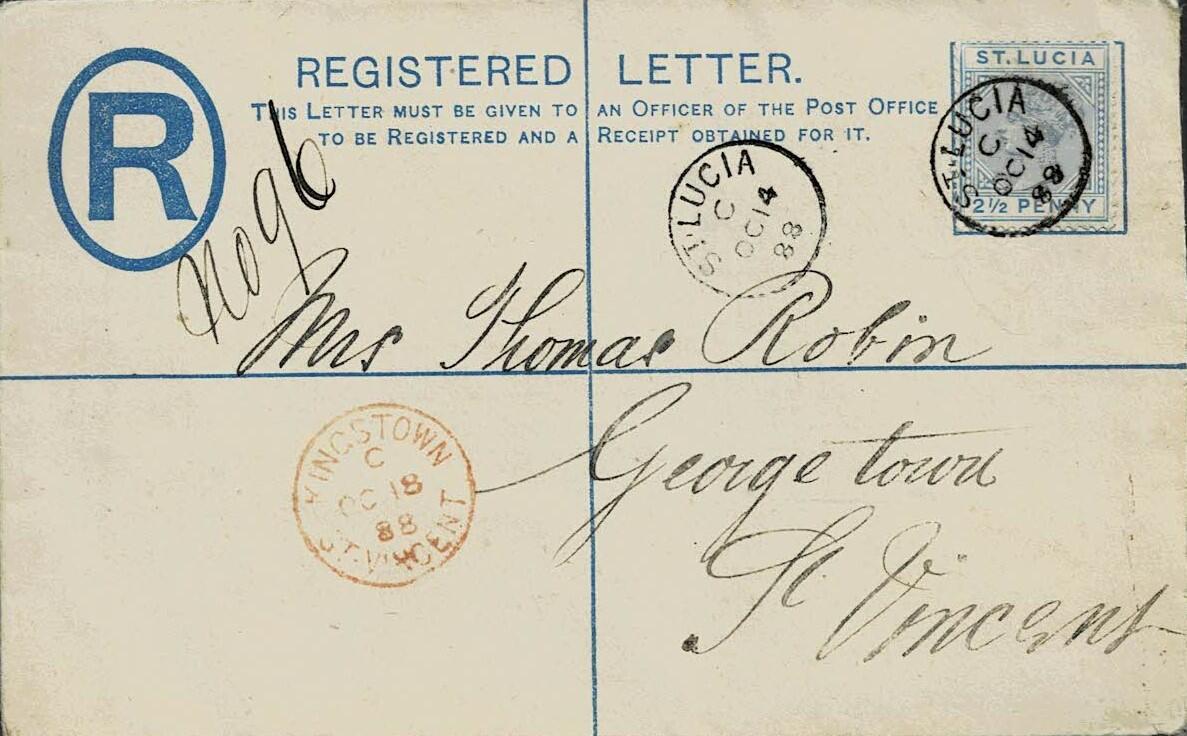 R
REGISTERED LETTER.
THIS LETTER MUST BE GIVEN TO AN OFFICER OF THE POST OFFICE
TO BE REGISTERED AND A RECEIPT OBTAINED FOR IT.
ST. LUCIA
2½ PENNY
ST. LUCIA
C
OC 14
88
ST. LUCIA
C
OC 14
88
No 96
Mrs Thomas Robin
George town
St Vincent
KINGSTOWN
C
OC 18
88
ST. VINCENT